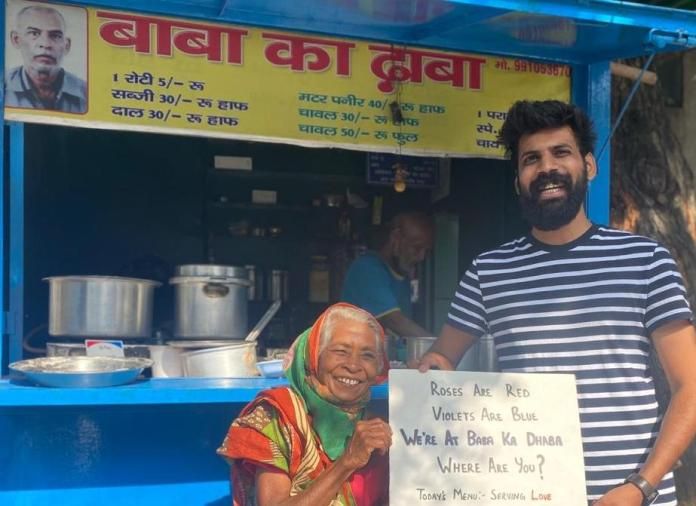 बाबा का ढ़ाबा
मो. 991053670
1 रोटी 5/– रू
सब्जी 30/– रू हाफ
दाल 30/– रू हाफ
मटर पनीर 40/– रू हाफ
चावल 30/– रू हाफ
चावल 50/– रू फुल
1 परा
स्पे.
चाव
Roses Are Red
Violets Are Blue
We're At Baba Ka Dhaba
Where Are You?
Today's Menu:- Serving Love